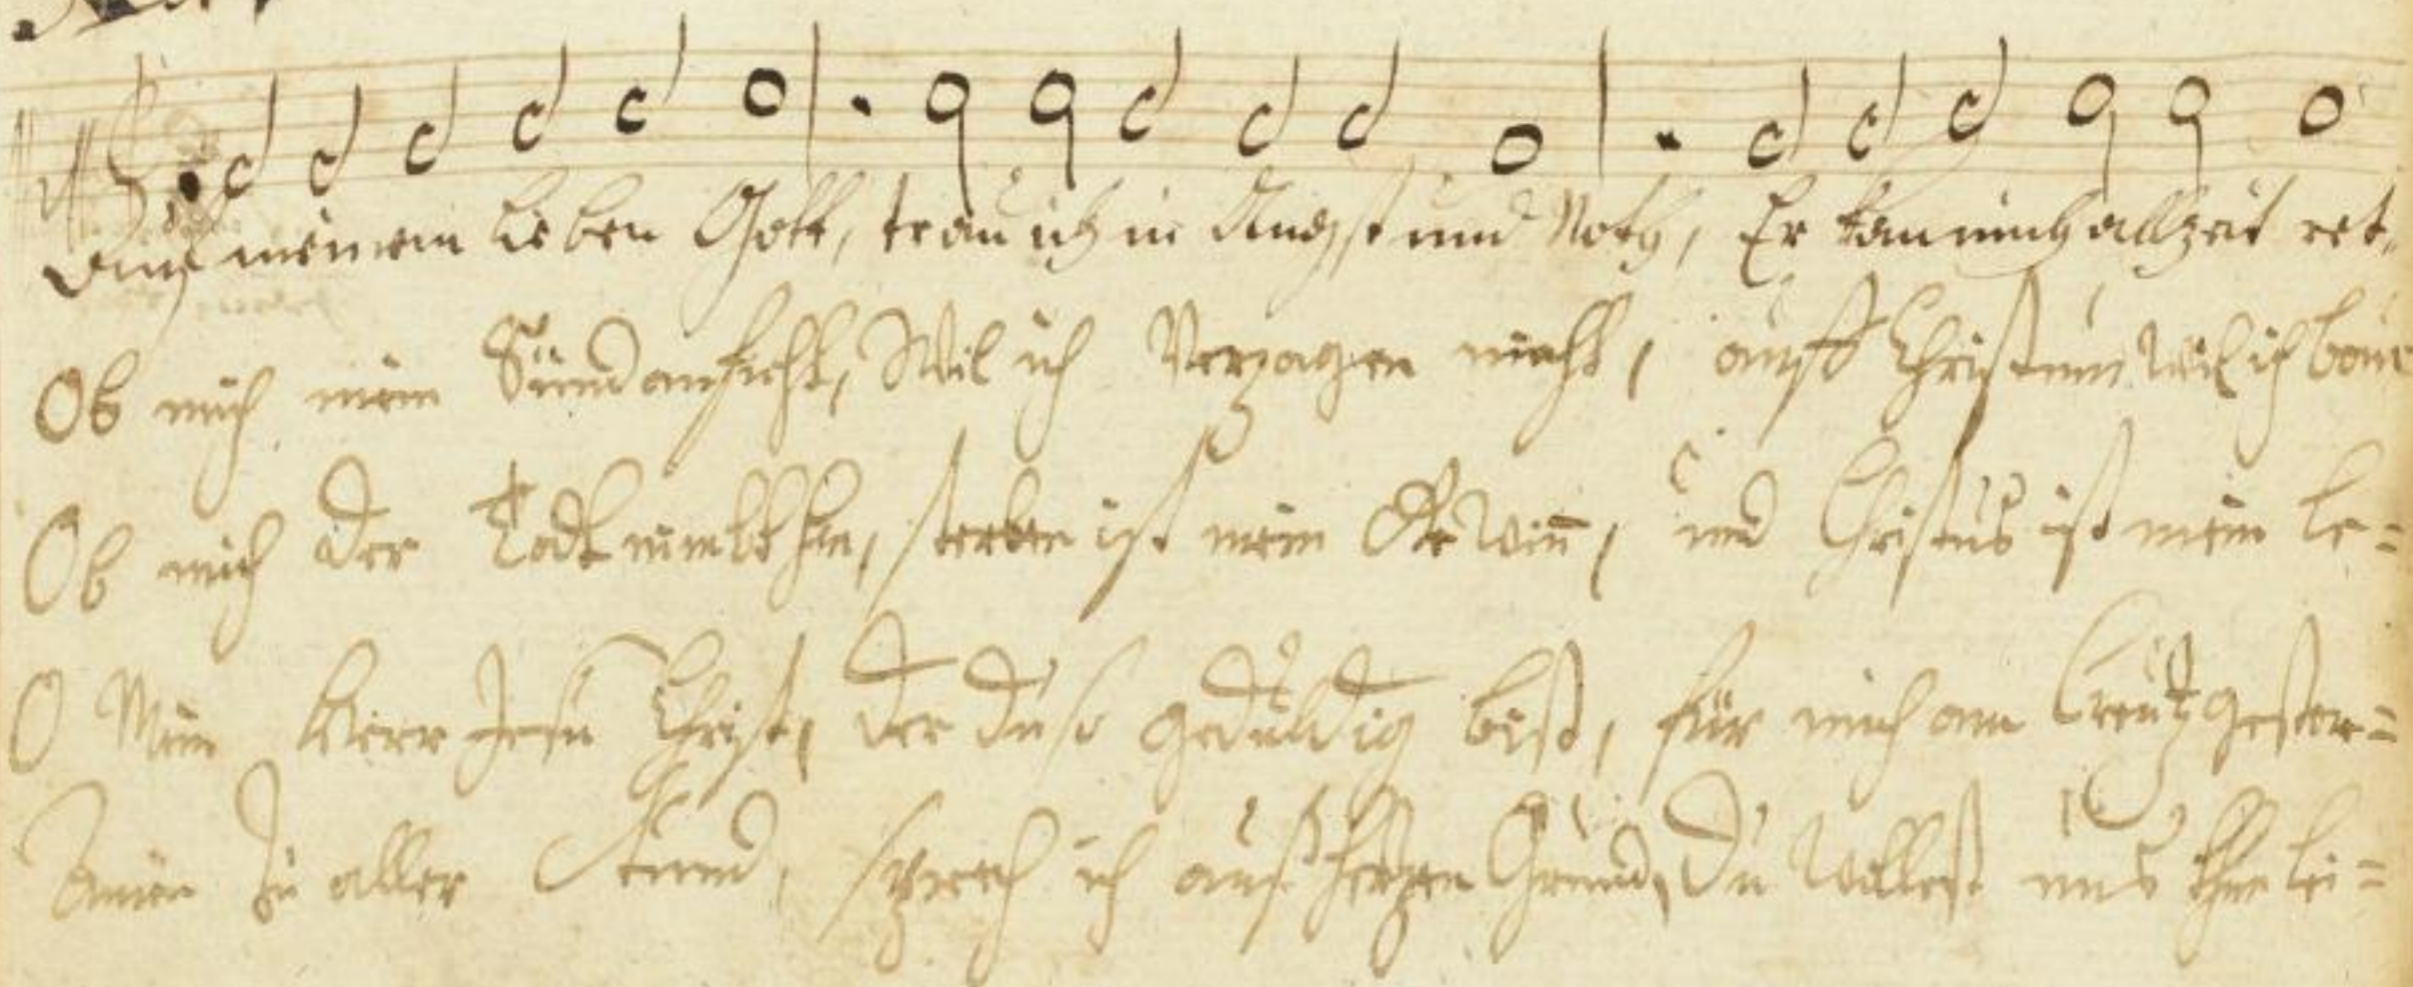 Auf meinen lieben Gott, trau ich in Angst und Noth, Er kan mich allzeit ret-
Ob mich mein Sünd anficht, Wil ich Verzagen nicht, auff Christum Wil ich baue
Ob mich der Todt nimbt hin, sterben ist mein Gewiñ, und Christus ist mein le=
O Mein Herr Jesu Christ, der du so gedüldig bist, für mich am Creütz gestor=
Amen zu aller Stund, sprech ich auß Hertzen Grund, Du Wollest uns thun lei=